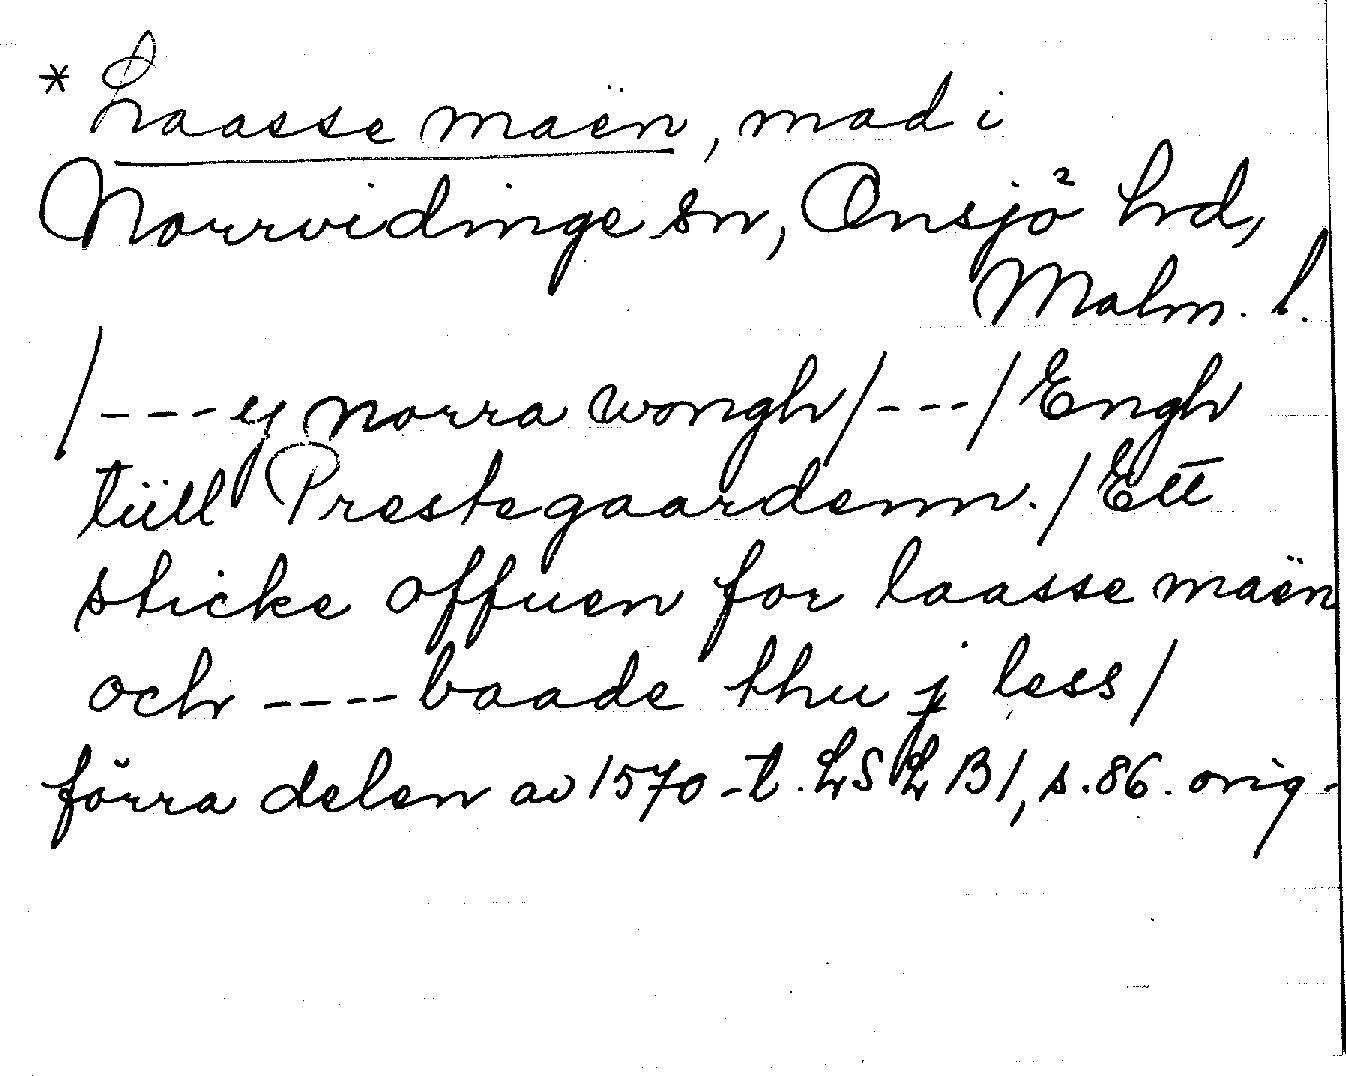 * Laasse maën, mad i
Norrvidinge sn, Onsjö hd,
Malm. l.
/---ij norra wongh/---/Engh
tüll Prestegaardenn./Ett
sticke offuen for laasse maën
och ----baade thu j less/
förra delen av 1570-t. LSLB1, s.86. orig-